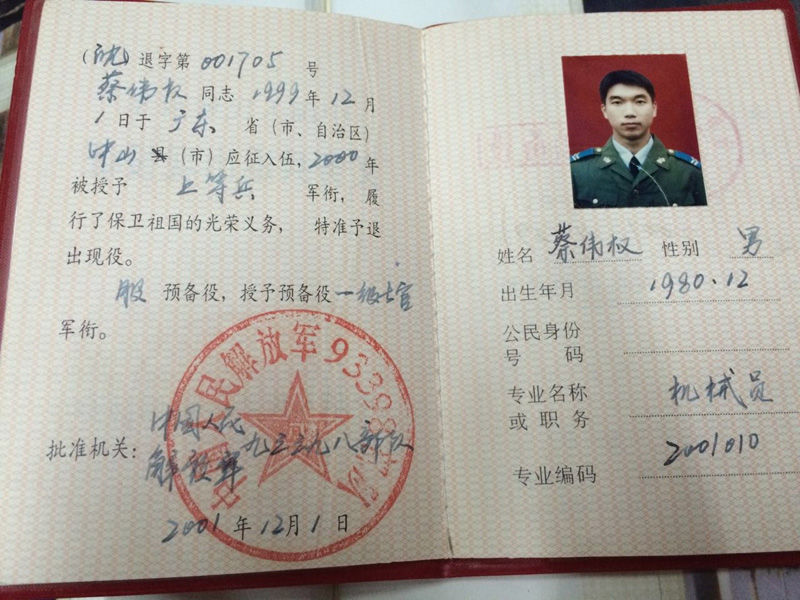 (沈) 退字第 001705 号
蔡伟权 同志 1999 年 12 月
1 日于 广东 省 (市、自治区)
中山 县 (市) 应征入伍, 2000 年
被授予 上等兵 军衔, 履
行了保卫祖国的光荣义务, 特准予退
出现役。
服 预备役, 授予预备役 一级士官
军衔。
中国人民解放军93398部队
批准机关: 中国人民
解放军九三三九八部队
2001 年 12 月 1 日
姓名 蔡伟权 性别 男
出生年月 1980.12
公民身份
号 码
专业名称 机械员
或 职 务
专业编码 2001010